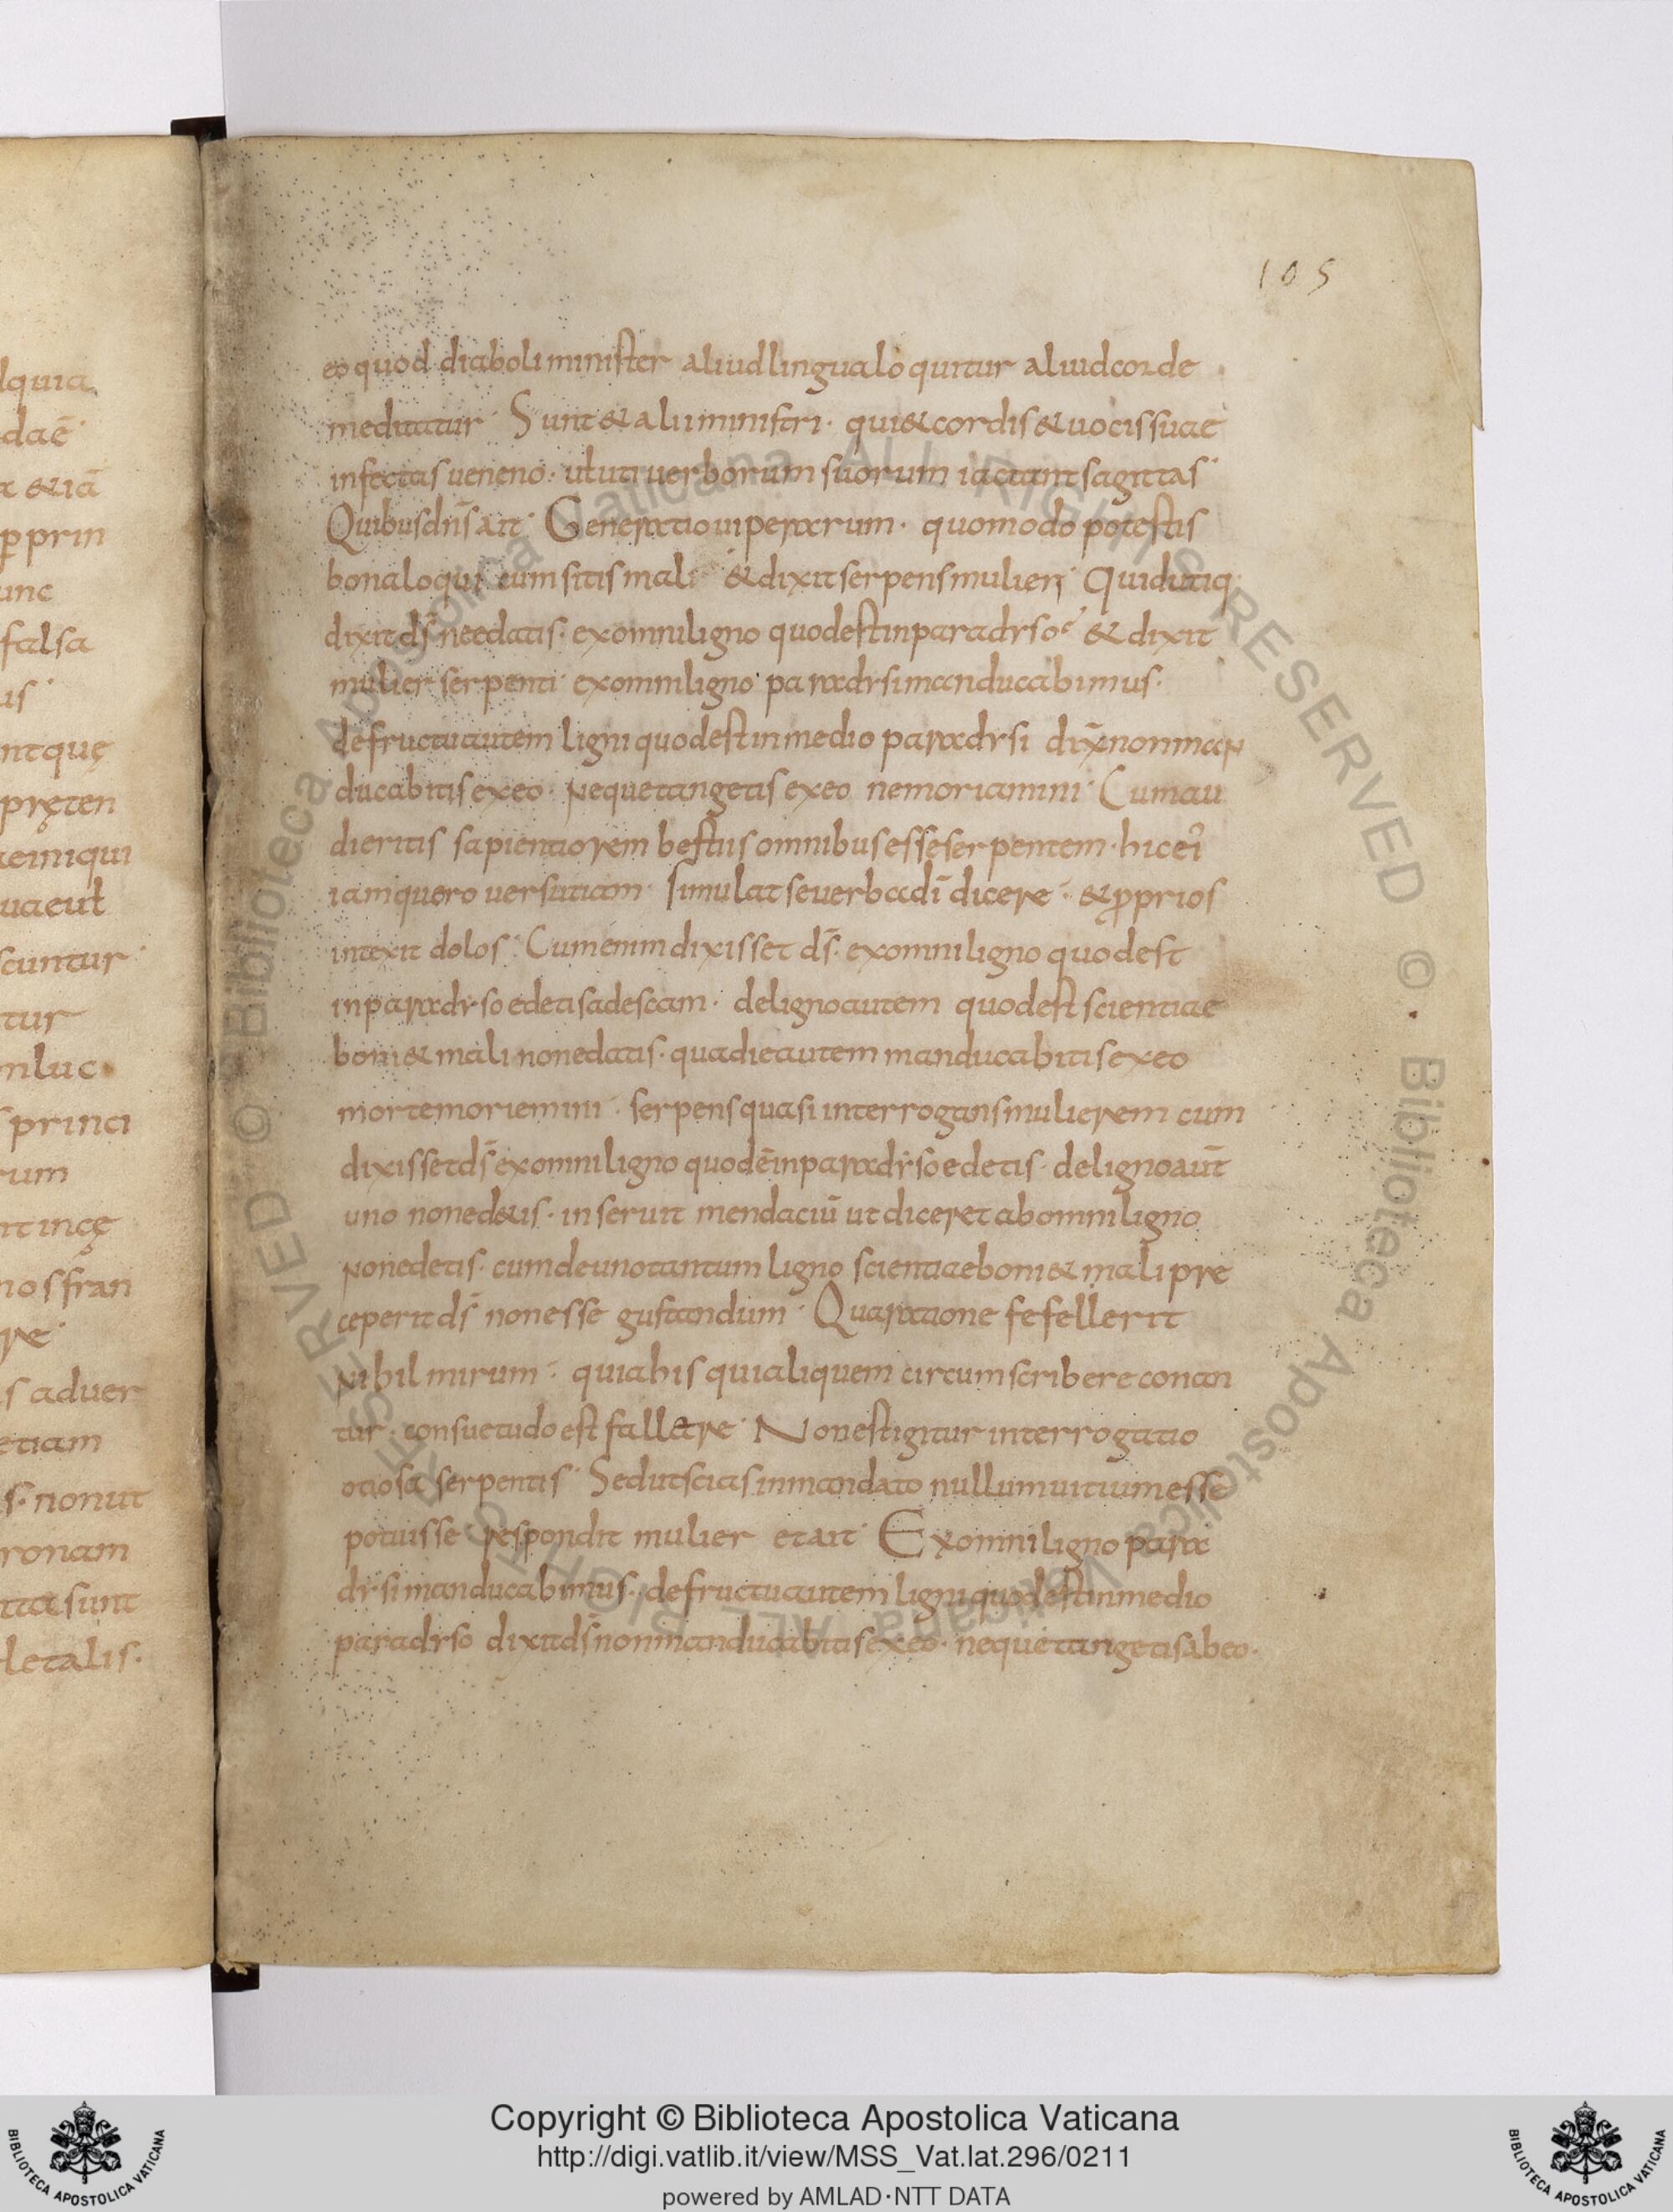 105
eo quod diaboli minister aliud lingua loquitur aliud corde
meditatur· Sunt & alii ministri· qui & cordis & uocis suae
infectas ueneno· uluti uerborum suorum iactant sagittas·
Quibus dn̄s ait· Generatio uiperarum· quomodo potestis
bona loqui cum sitis mali· & dixit serpens mulieri· Quid utiq;
dixit ds̄ ne edatis· ex omni ligno quod est in paradyso· & dixit
mulier serpenti· ex omni ligno paradysi manducabimus·
de fructu autem ligni quod est in medio paradysi dix̄ non man
ducabitis ex eo· Neque tangetis ex eo ne moriamini· Cum au
dieritis sapientiorem bestiis omnibus esse serpentem· hic ei
iam quero uersutiam· Simulat se uerba dī dicere· & proprios
intexit dolos· Cum enim dixisset ds̄· ex omni ligno quod est
in paradyso edetis ad escam· de ligno autem quod est scientiae
boni & mali non edatis· qua die autem manducabitis ex eo
morte moriemini· serpens quasi interrogans mulierem cum
dixisset ds̄ ex omni ligno quod ē in paradyso edetis· de ligno aut̄
uno non edetis· inseruit mendaciū ut diceret ab omni ligno
Non edetis· cum de uno tantum ligno scientiae boni & mali pre
ceperit ds̄ non esse gustandum· Qua ratione fefellerit
Nihil mirum· quia his qui aliquem circumscribere conan
tur· consuetudo est fallere· Non est igitur interrogatio
otiosa serpentis· Sed ut scias in mandato nullum uitium esse
potuisse respondit mulier et ait· Ex omni ligno para
dysi manducabimus· de fructu autem ligni quod est in medio
paradyso dixit ds̄ non manducabitis ex eo· neque tangetis ab eo·
lquia
daē·
& iā
p prin
unc
falsa
us·
ntquę
pręten
uaeut
scuntur·
tur
princi
rum
nt incę
nos fran
re·
s aduer
etiam
s· non ut
ronam
sunt
letalis·
© Biblioteca Apostolica Vaticana ALL RIGHTS RESERVED © Biblioteca Apostolica Vaticana ALL RIGHTS RESERVED
BIBLIOTECA APOSTOLICA VATICANA
Copyright © Biblioteca Apostolica Vaticana
http://digi.vatlib.it/view/MSS_Vat.lat.296/0211
powered by AMLAD·NTT DATA
BIBLIOTECA APOSTOLICA VATICANA